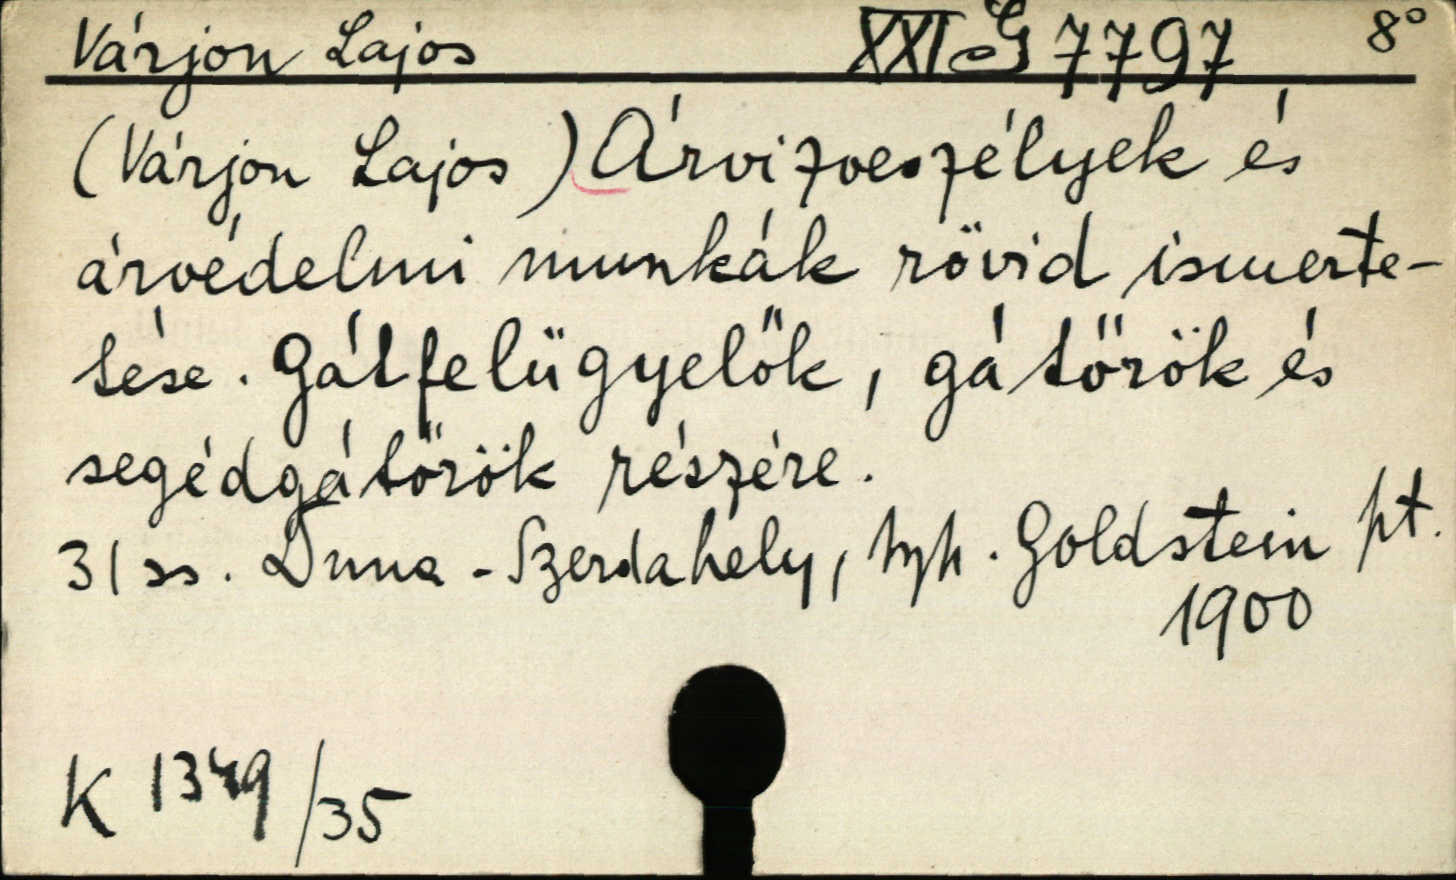 Várjon Lajos XXI G 7797 8°
(Várjon Lajos) Árvizveszélyek és
árvédelmi munkák rövid ismerte-
tése. Gátfelügyelők, gátőrök és
segédgátőrök részére.
31 ss. Duna-Szerdahely, typ. Goldstein pt.
1900
K 1349/35